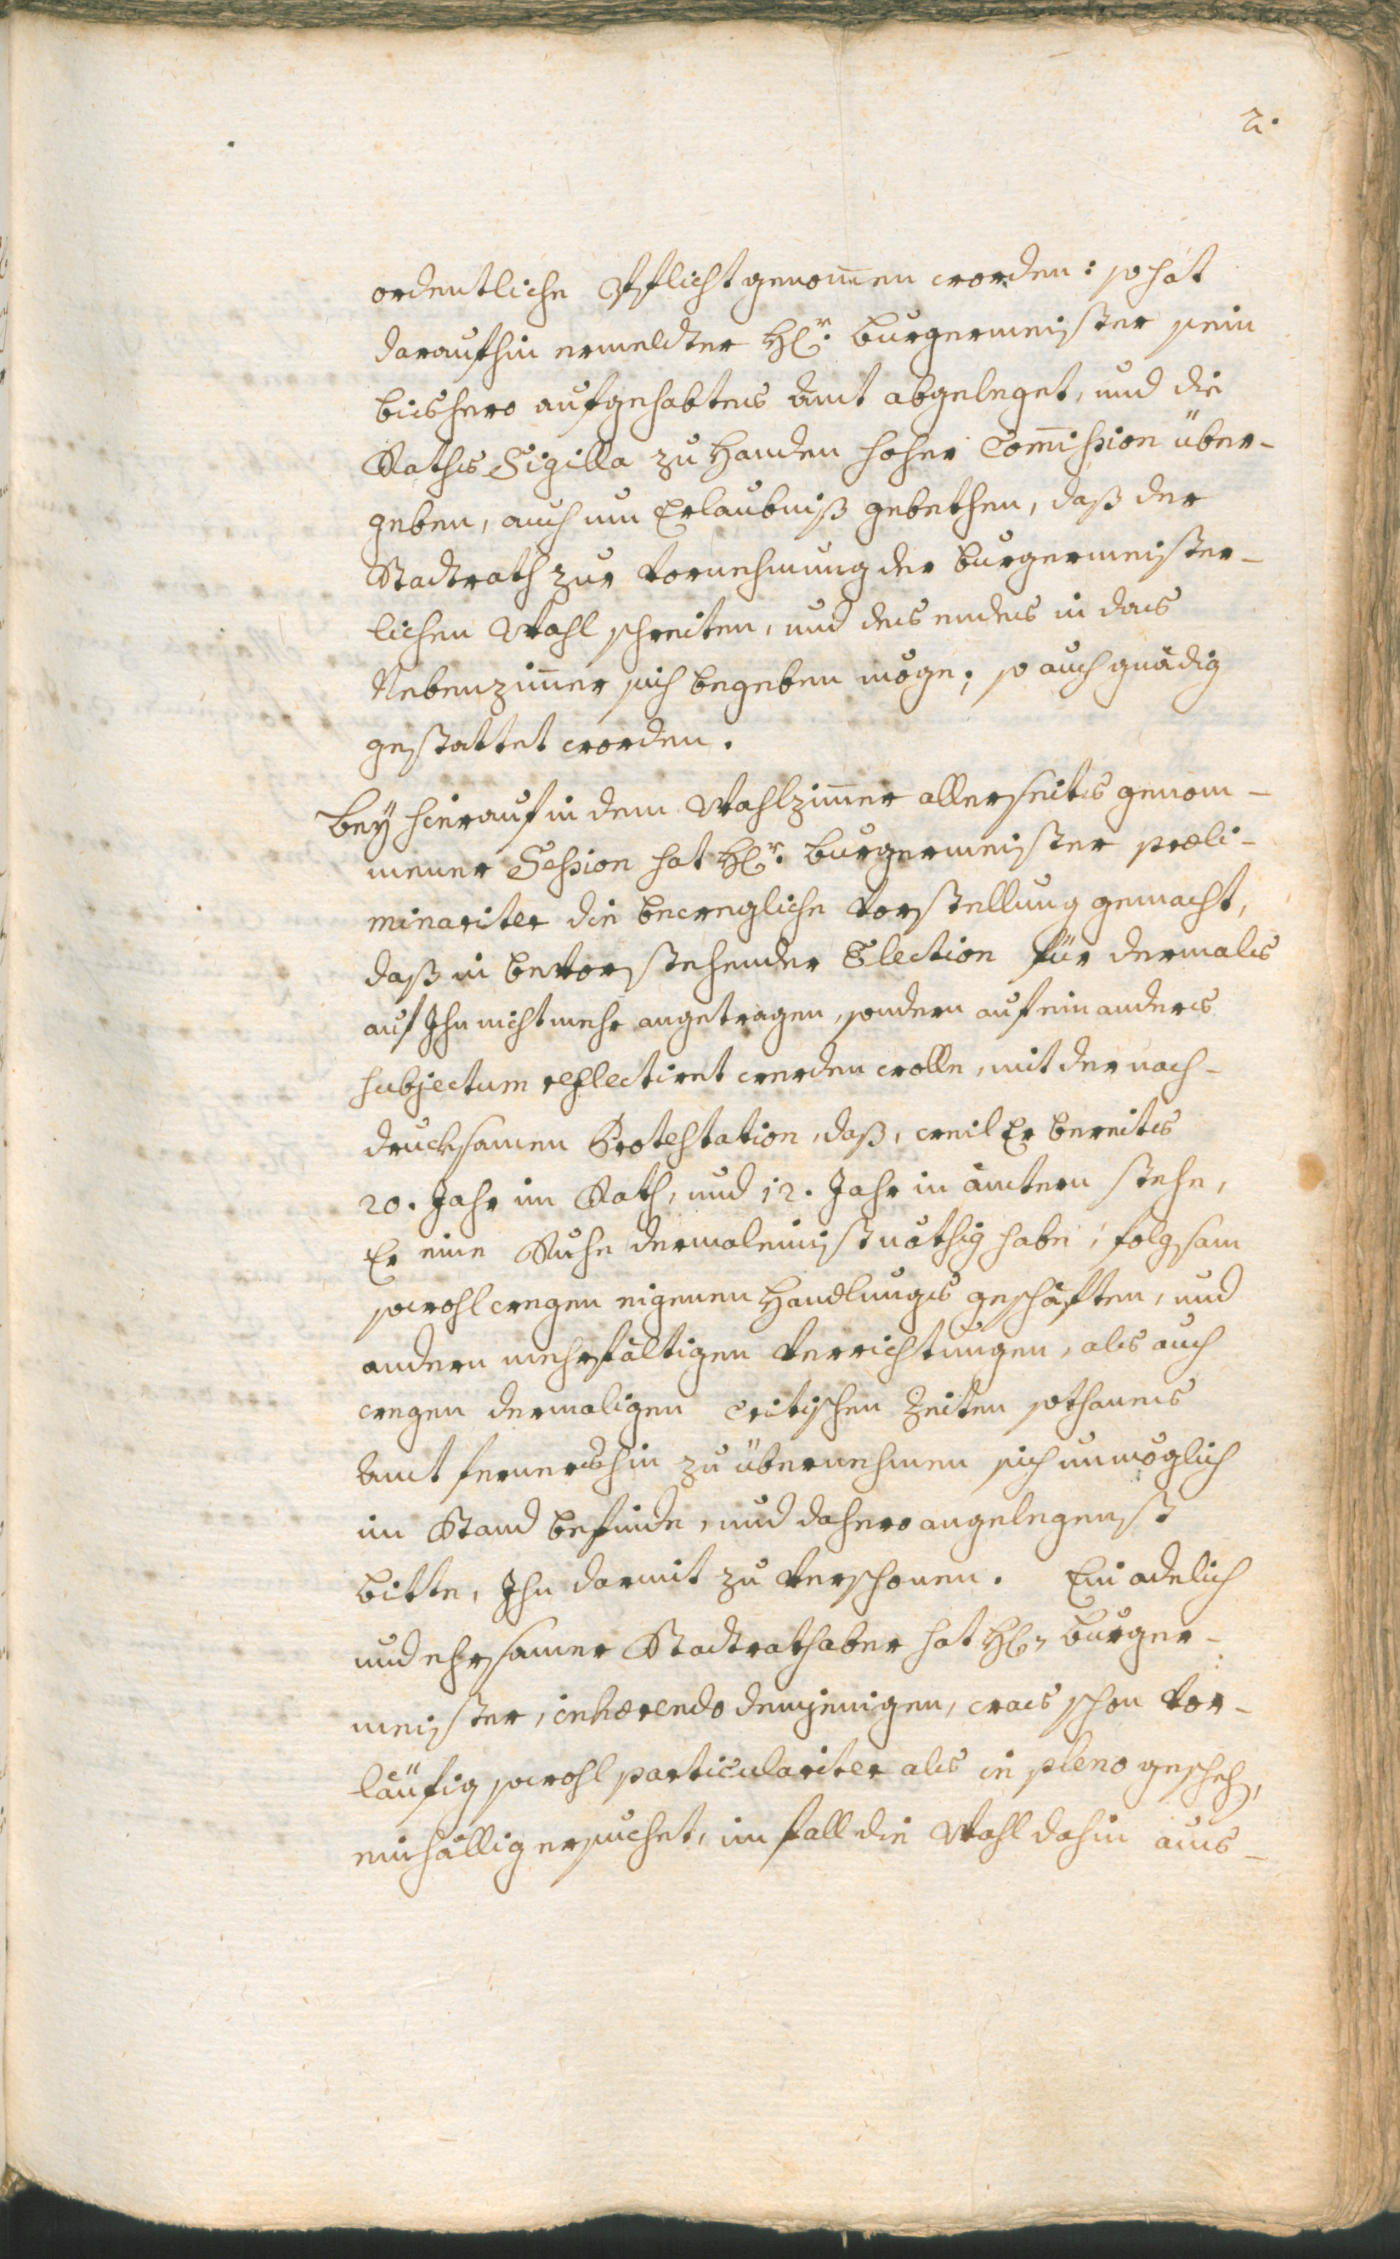 2.
ordentliche Pflicht genom̄en worden: so hat
daraufhin ermeldter H<sup>r</sup>. Burgermeister sein
bishero aufgehabtes Amt abgeleget, und die
Raths Sigilla zu Handen hoher Com̄ission über-
geben, auch um Erlaubniß gebethen, daß der
Stadtrath zur Vornehmung der Burgermeister-
lichen Wahl schreiten, und des endes in das
Nebenzim̄er sich begeben möge; so auch gnädig
gestattet worden.
Bey hierauf in dem Wahlzim̄er allerseits genom-
mener Session hat H<sup>r</sup>. Burgermeister præli-
minariter die bewegliche Vorstellung gemacht,
daß in bevorstehender Election für dermals
auf Ihn nicht mehr angetragen, sondern auf ein anders
subjectum reflectiret werden wolle, mit der nach-
drucksamen Protestation, daß, weil Er bereits
20. Jahr im Rath, und 12. Jahr in ämtern stehe,
Er eine Ruhe dermaleinist nöthig habe, folgsam
sowohl wegen eigenen Handlungs geschäften, und
andern mehrfältigen Verrichtungen, als auch
wegen dermaligen Critischen Zeiten sothanes
Amt fernershin zu übernehmen sich unmöglich
im Stand befinde, und dahero angelegenst
bitte, Ihn darmit zu verschonen. Ein adelich
und ehrsamer Stadtrath aber hat H. Burger-
meister, inhærendo demjenigen, was schon vor-
läufig sowohl particulariter als in pleno gescheh,
einhällig ersuchet, im fall die Wahl dahin aus-